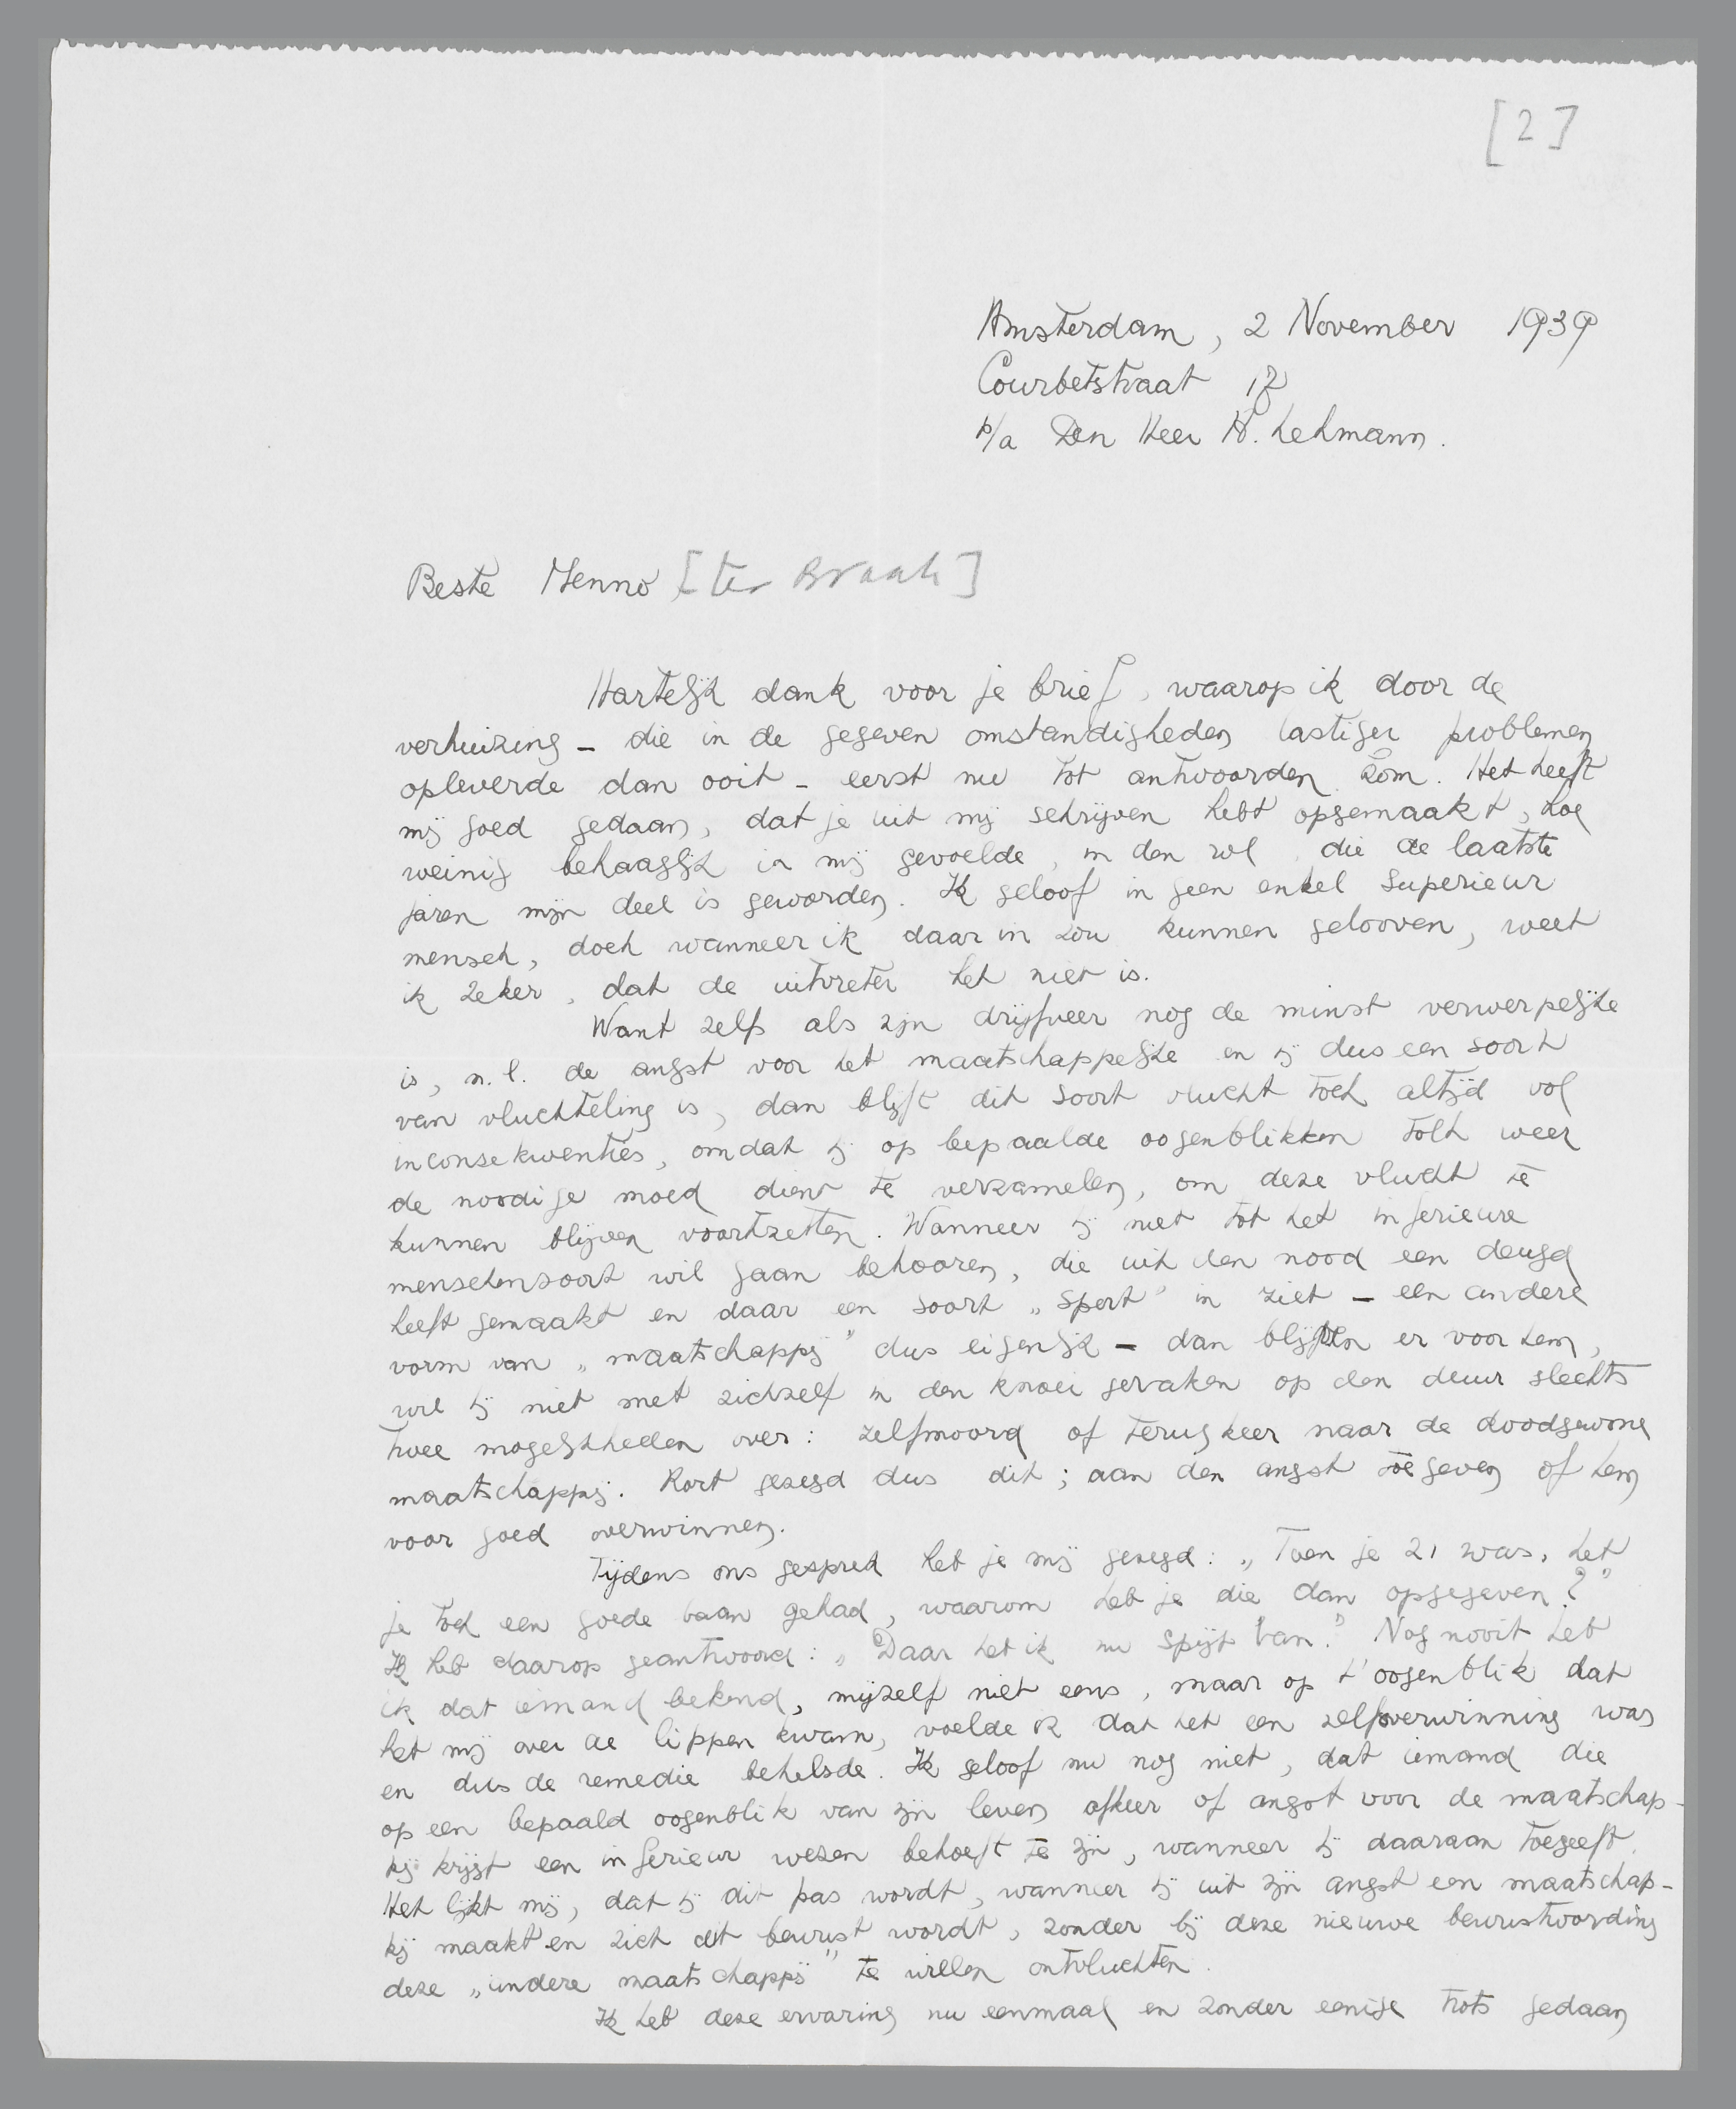 [2]
Amsterdam, 2 November 1939
Courbetstraat 17
p/a Den Heer H. Lehmann.
Beste Menno [ter Braak]
Hartelijk dank voor je brief, waarop ik door de
verhuizing – die in de gegeven omstandigheden lastiger problemen
opleverde dan ooit – eerst nu tot antwoorden kom. Het heeft
mij goed gedaan, dat je uit mij schrijven hebt opgemaakt, hoe
weinig behaaglijk ik mij gevoelde, in den rol, die de laatste
jaren mijn deel is geworden. Ik geloof in geen enkel superieur
mensch, doch wanneer ik daar in zou kunnen gelooven, weet
ik zeker, dat de uitvreter het niet is.
Want zelfs als zijn drijfveer nog de minst verwerpelijke
is, n.l. de angst voor het maatschappelijke en hij dus een soort
van vluchteling is, dan blijft dit soort vlucht toch altijd vol
inconsekwenties, omdat hij op bepaalde oogenblikken toch weer
de noodige moed dient te verzamelen, om deze vlucht te
kunnen blijven voortzetten. Wanneer hij niet tot het inferieure
menschensoort wil gaan behooren, die uit den nood een deugd
heeft gemaakt en daar een soort „sport” in ziet – een andere
vorm van „maatschappij” dus eigenlijk – dan blijven er voor hem,
wil hij niet met zichzelf in den knoei geraken op den duur slechts
twee mogelijkheden over: zelfmoord of terugkeer naar de doodgewone
maatschappij. Kort gezegd dus dit; aan den angst toegeven of hem
voor goed overwinnen.
Tijdens ons gesprek heb je mij gezegd: „Toen je 21 was, heb
je toch een goede baan gehad, waarom heb je die dan opgegeven?”
Ik heb daarop geantwoord: „Daar heb ik nu spijt van.” Nog nooit heb
ik dat iemand bekend, mijzelf niet eens, maar op 't oogenblik dat
het mij over de lippen kwam, voelde ik dat het een zelfoverwinning was
en dus de remedie behelsde. Ik geloof nu nog niet, dat iemand die
op een bepaald oogenblik van zijn leven afkeer of angst voor de maatschap-
pij krijgt een inferieur wezen behoeft te zijn, wanneer hij daaraan toegeeft.
Het lijkt mij, dat hij dit pas wordt, wanneer hij uit zijn angst een maatschap-
pij maakt en zich dit bewust wordt, zonder bij deze nieuwe bewustwording
deze „andere maatschappij” te willen ontvluchten.
Ik heb deze ervaring nu eenmaal en zonder eenige trots gedaan